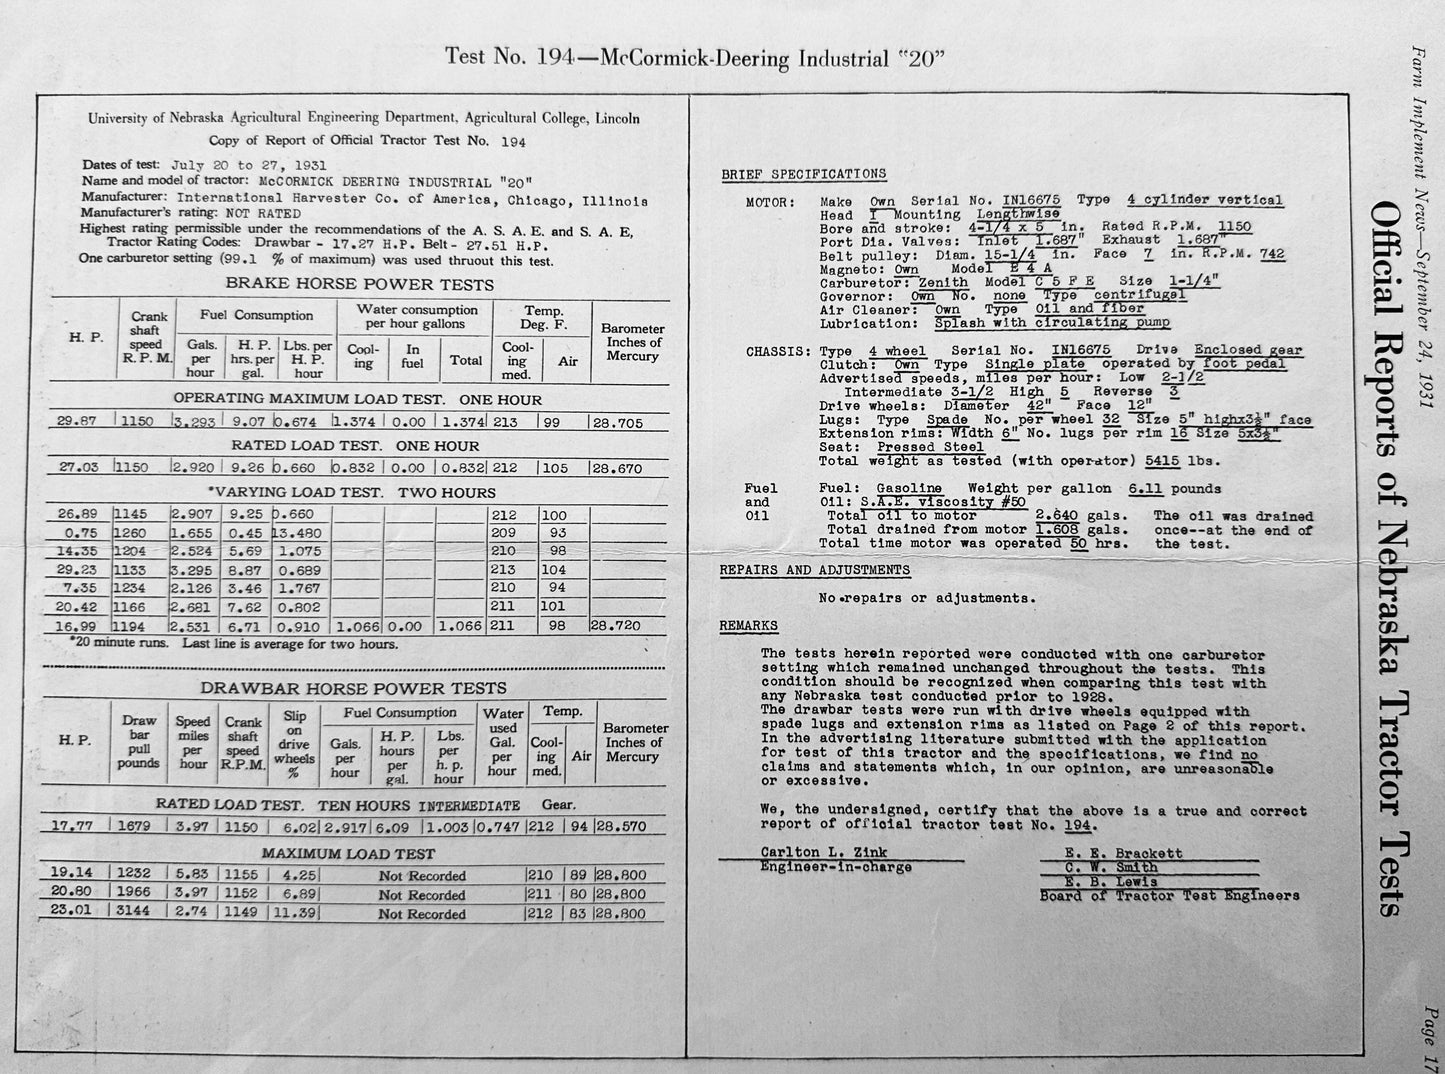 Test No. 194—McCormick-Deering Industrial "20"
University of Nebraska Agricultural Engineering Department, Agricultural College, Lincoln
Copy of Report of Official Tractor Test No. 194
Dates of test: July 20 to 27, 1931
Name and model of tractor: McCORMICK DEERING INDUSTRIAL "20"
Manufacturer: International Harvester Co. of America, Chicago, Illinois
Manufacturer's rating: NOT RATED
Highest rating permissible under the recommendations of the A. S. A. E. and S. A. E,
Tractor Rating Codes: Drawbar - 17.27 H.P. Belt - 27.51 H.P.
One carburetor setting (99.1 % of maximum) was used thruout this test.
BRAKE HORSE POWER TESTS
H. P. Crank shaft speed R. P. M. Fuel Consumption Water consumption per hour gallons Temp. Deg. F. Barometer Inches of Mercury
Gals. per hour H. P. hrs. per gal. Lbs. per H. P. hour Cool- ing In fuel Total Cool- ing med. Air
OPERATING MAXIMUM LOAD TEST. ONE HOUR
29.87 1150 3.293 9.07 0.674 1.374 0.00 1.374 213 99 28.705
RATED LOAD TEST. ONE HOUR
27.03 1150 2.920 9.26 0.660 0.832 0.00 0.832 212 105 28.670
*VARYING LOAD TEST. TWO HOURS
26.89 1145 2.907 9.25 0.660 212 100
0.75 1260 1.655 0.45 13.480 209 93
14.35 1204 2.524 5.69 1.075 210 98
29.23 1133 3.295 8.87 0.689 213 104
7.35 1234 2.126 3.46 1.767 210 94
20.42 1166 2.681 7.62 0.802 211 101
16.99 1194 2.531 6.71 0.910 1.066 0.00 1.066 211 98 28.720
*20 minute runs. Last line is average for two hours.
DRAWBAR HORSE POWER TESTS
H. P. Draw bar pull pounds Speed miles per hour Crank shaft speed R.P.M. Slip on drive wheels % Fuel Consumption Water used Gal. per hour Temp. Barometer Inches of Mercury
Gals. per hour H. P. hours per gal. Lbs. per h. p. hour Cool- ing med. Air
RATED LOAD TEST. TEN HOURS INTERMEDIATE Gear.
17.77 1679 3.97 1150 6.02 2.917 6.09 1.003 0.747 212 94 28.570
MAXIMUM LOAD TEST
19.14 1232 5.83 1155 4.25 Not Recorded 210 89 28.800
20.80 1966 3.97 1152 6.89 Not Recorded 211 80 28.800
23.01 3144 2.74 1149 11.39 Not Recorded 212 83 28.800
BRIEF SPECIFICATIONS
MOTOR: Make Own Serial No. IN16675 Type 4 cylinder vertical
Head I Mounting Lengthwise
Bore and stroke: 4-1/4 x 5 in. Rated R.P.M. 1150
Port Dia. Valves: Inlet 1.687" Exhaust 1.687"
Belt pulley: Diam. 15-1/4 in. Face 7 in. R.P.M. 742
Magneto: Own Model E 4 A
Carburetor: Zenith Model C 5 F E Size 1-1/4"
Governor: Own No. none Type centrifugel
Air Cleaner: Own Type Oil and fiber
Lubrication: Splash with circulating pump
CHASSIS: Type 4 wheel Serial No. IN16675 Drive Enclosed gear
Clutch: Own Type Single plate operated by foot pedal
Advertised speeds, miles per hour: Low 2-1/2
Intermediate 3-1/2 High 5 Reverse 3
Drive wheels: Diameter 42" Face 12"
Lugs: Type Spade No. per wheel 32 Size 5" highx3½" face
Extension rims: Width 6" No. lugs per rim 16 Size 5x3½"
Seat: Pressed Steel
Total weight as tested (with operator) 5415 lbs.
Fuel and Oil Fuel: Gasoline Weight per gallon 6.11 pounds
Oil: S.A.E. viscosity #50
Total oil to motor 2.640 gals. The oil was drained
Total drained from motor 1.608 gals. once--at the end of
Total time motor was operated 50 hrs. the test.
REPAIRS AND ADJUSTMENTS
No repairs or adjustments.
REMARKS
The tests herein reported were conducted with one carburetor
setting which remained unchanged throughout the tests. This
condition should be recognized when comparing this test with
any Nebraska test conducted prior to 1928.
The drawbar tests were run with drive wheels equipped with
spade lugs and extension rims as listed on Page 2 of this report.
In the advertising literature submitted with the application
for test of this tractor and the specifications, we find no
claims and statements which, in our opinion, are unreasonable
or excessive.
We, the undersigned, certify that the above is a true and correct
report of official tractor test No. 194.
Carlton L. Zink
Engineer-in-charge
E. E. Brackett
C. W. Smith
E. B. Lewis
Board of Tractor Test Engineers
Farm Implement News—September 24, 1931
Official Reports of Nebraska Tractor Tests
Page 17